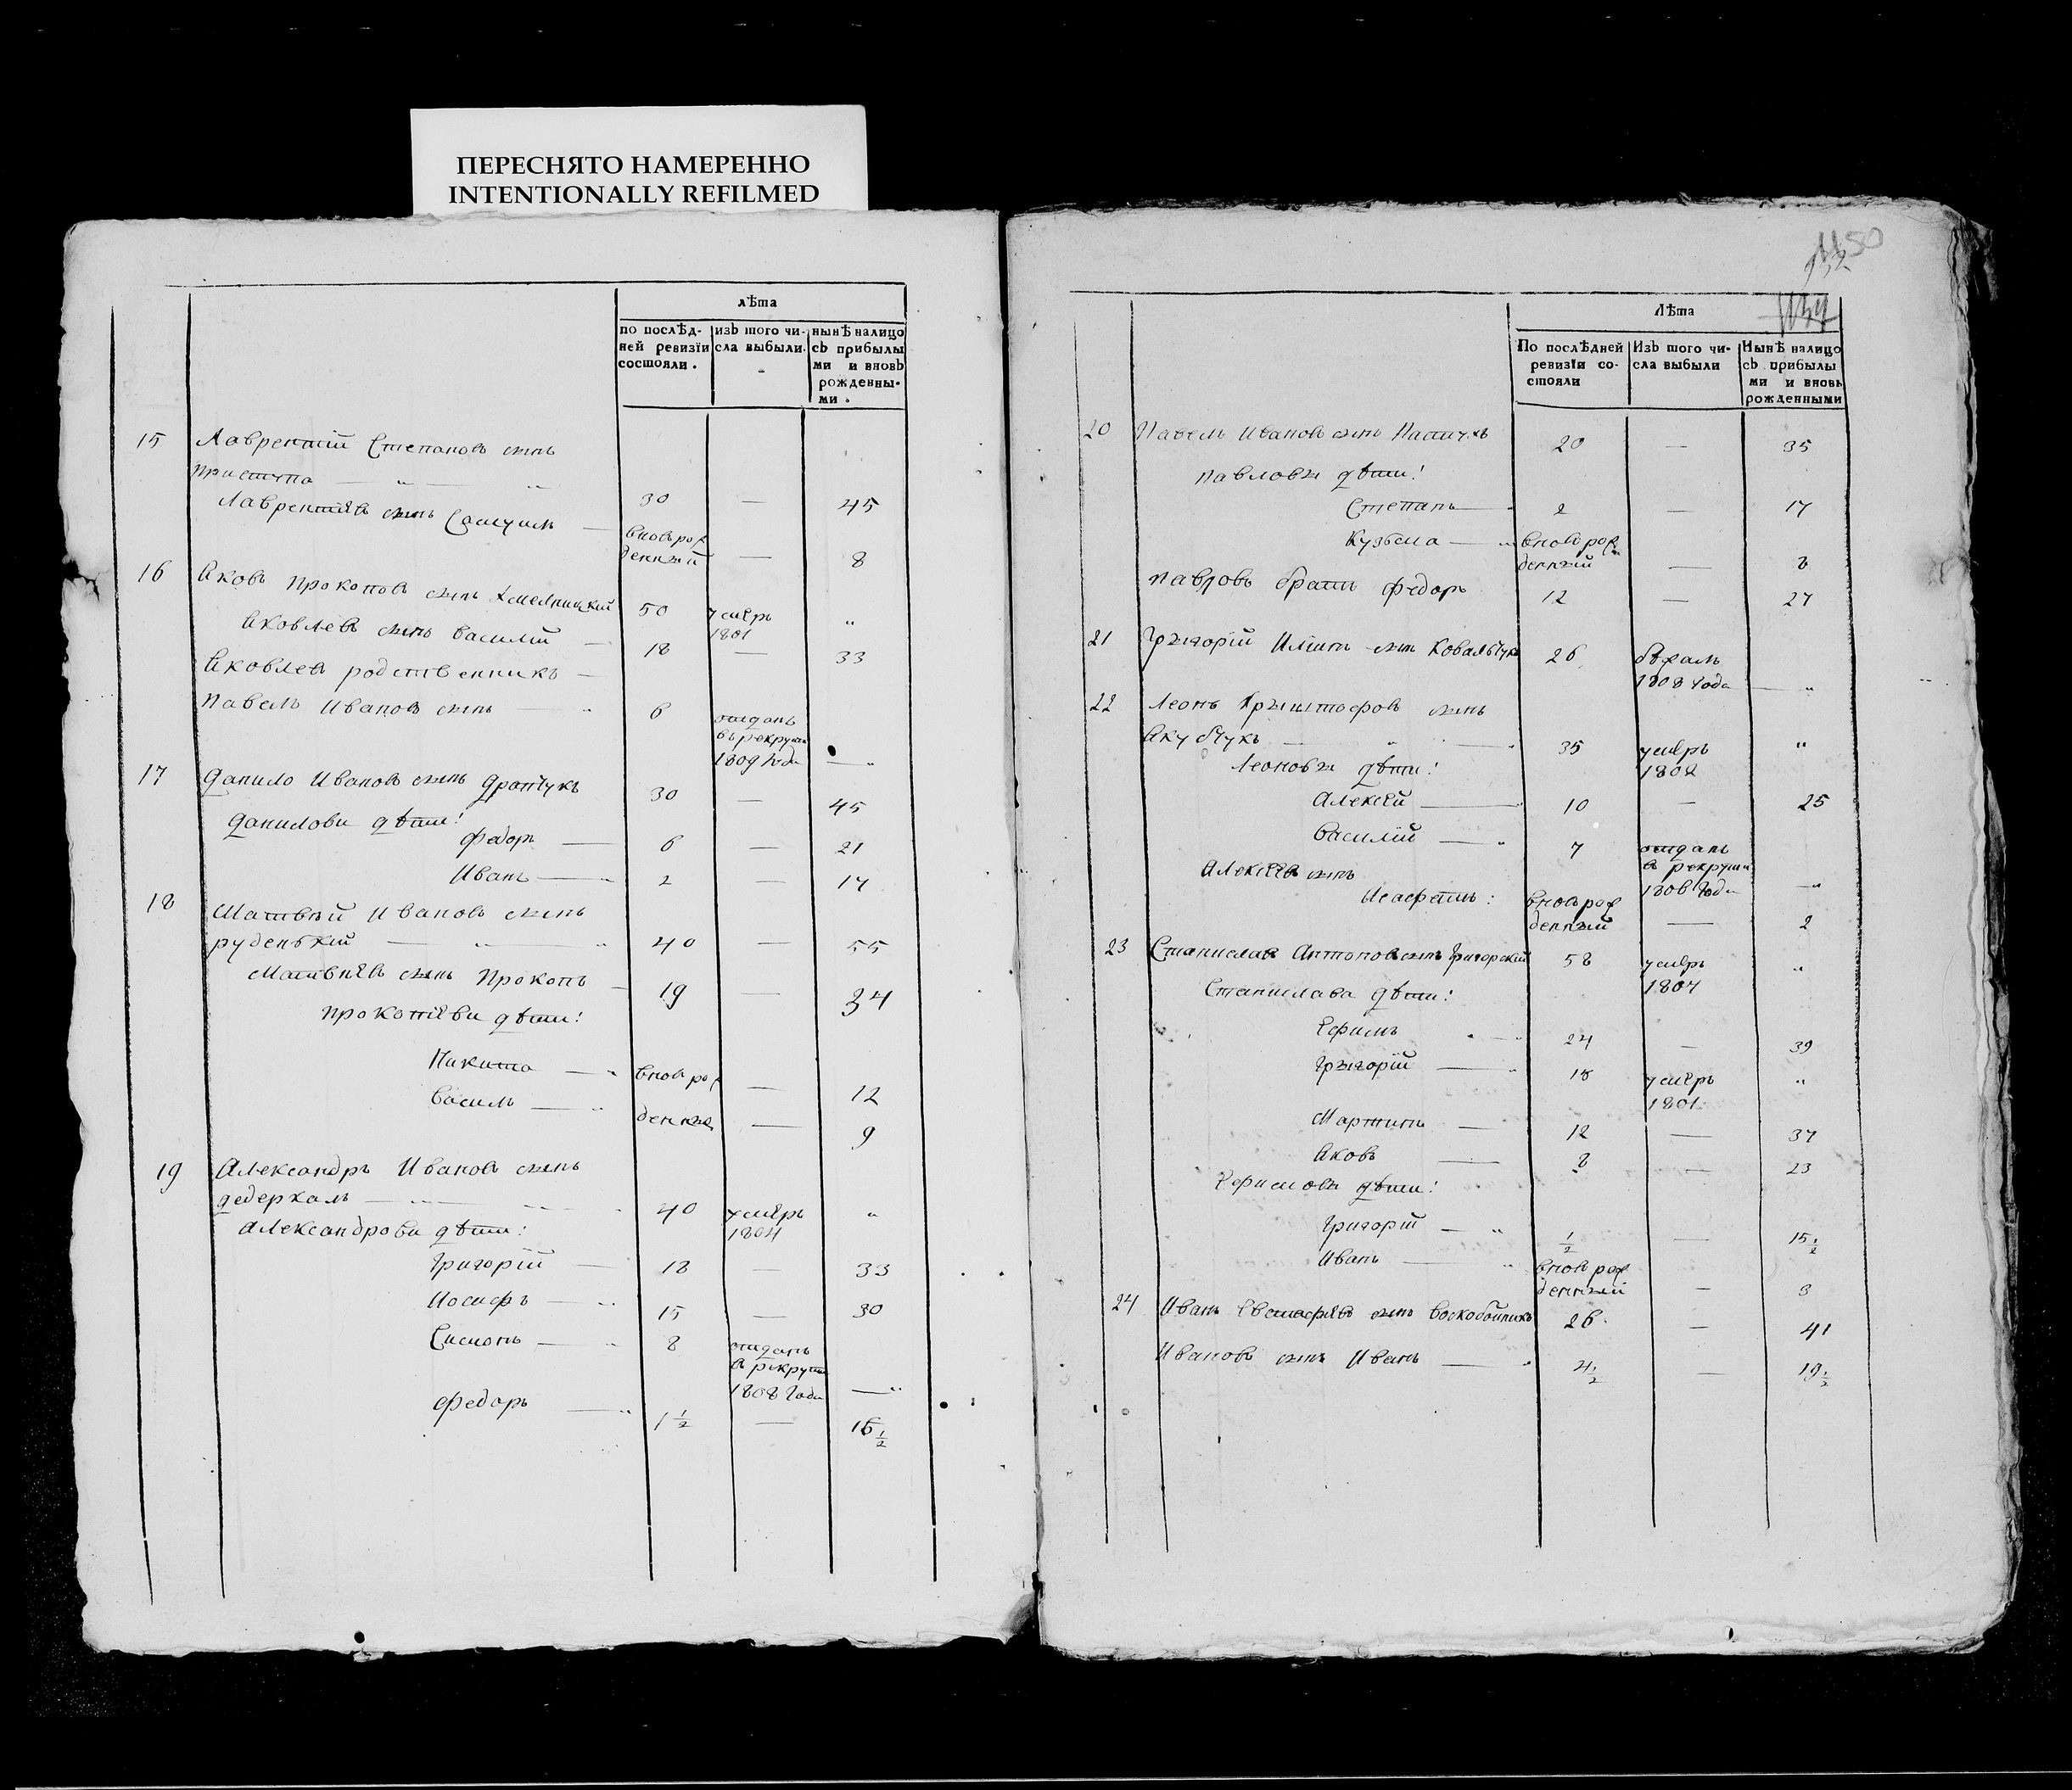 ПЕРЕСНЯТО НАМЕРЕННО
INTENTIONALLY REFILMED
лѣта
по послѣд- изъ того чи- нынѣ налицо
ней ревизїи сла выбыли. съ прибылы
состояли. ми и вновь
рожденны-
ми.
15 Лаврентїй Степановъ сынъ
Приступа 30 — 45
Лаврентїевъ сынъ Самуилъ — вновь рож
денный — 8
16 Яковъ Прокоповъ сынъ Хмелницкий 50 умеръ
1801 "
Яковлевъ сынъ Василий — 18 — 33
Яковлевъ родственникъ —
Павелъ Ивановъ сынъ — 6 отданъ
въ рекруты
1809 года — "
17 Данило Ивановъ сынъ 30 — 45
Данилови дѣти:
Федоръ — 6 — 21
Иванъ — 2 — 17
18 Матвѣй Ивановъ сынъ
руденький — 40 — 55
Матвѣевъ сынъ Прокопъ — 19 — 34
Прокопїеви дѣти:
Никита — вновь рож — 12
Василь — денные — 9
19 Александръ Ивановъ сынъ
дедеркалъ — 40 умеръ "
1804
Александрови дѣти:
Григорїй — 18 — 33
Иосифъ — 15 — 30
Симонъ — 8 отданъ
в рекруты
1808 года — "
Федоръ — 1 1/2 — 16 1/2
50
Лѣта
По послѣдней Изъ того чи- Нынѣ налицо
ревизїи со- сла выбыли съ прибылы
стояли ми и вновь
рожденными
20 Павелъ Ивановъ сынъ Пастухъ 20 — 35
Павловы дѣти:
Степанъ — 2 — 17
Кузьма — вновь рож
денный — 8
Павловъ братъ Федоръ 12 — 27
21 Григорїй Ильинъ сынъ Ковальчукъ 26 бѣжалъ
1808 года — "
22 Леонъ Крыштофовъ сынъ
Якубчукъ — 35 умеръ "
1802
Леоновы дѣти:
Алексїй — 10 — 25
Василїй — 7 отданъ
в рекруты
1806 года — "
Алексїевъ сынъ
Иосафатъ: вновь рож
денный — 2
23 Станиславъ Антоновъ сынъ Григорский 58 умеръ "
1807
Станислава дѣти:
Ефимъ 24 — 39
Григорїй — 18 умеръ "
1801
Мартинъ — 12 — 37
Яковъ — 8 — 23
Ефимовы дѣти:
Григорїй — 1/2 — 15 1/2
Иванъ — вновь рож
денный — 3
24 Иванъ Евстафїевъ сынъ Воскобойникъ 26 — 41
Ивановъ сынъ Иванъ — 4 1/2 — 19 1/2